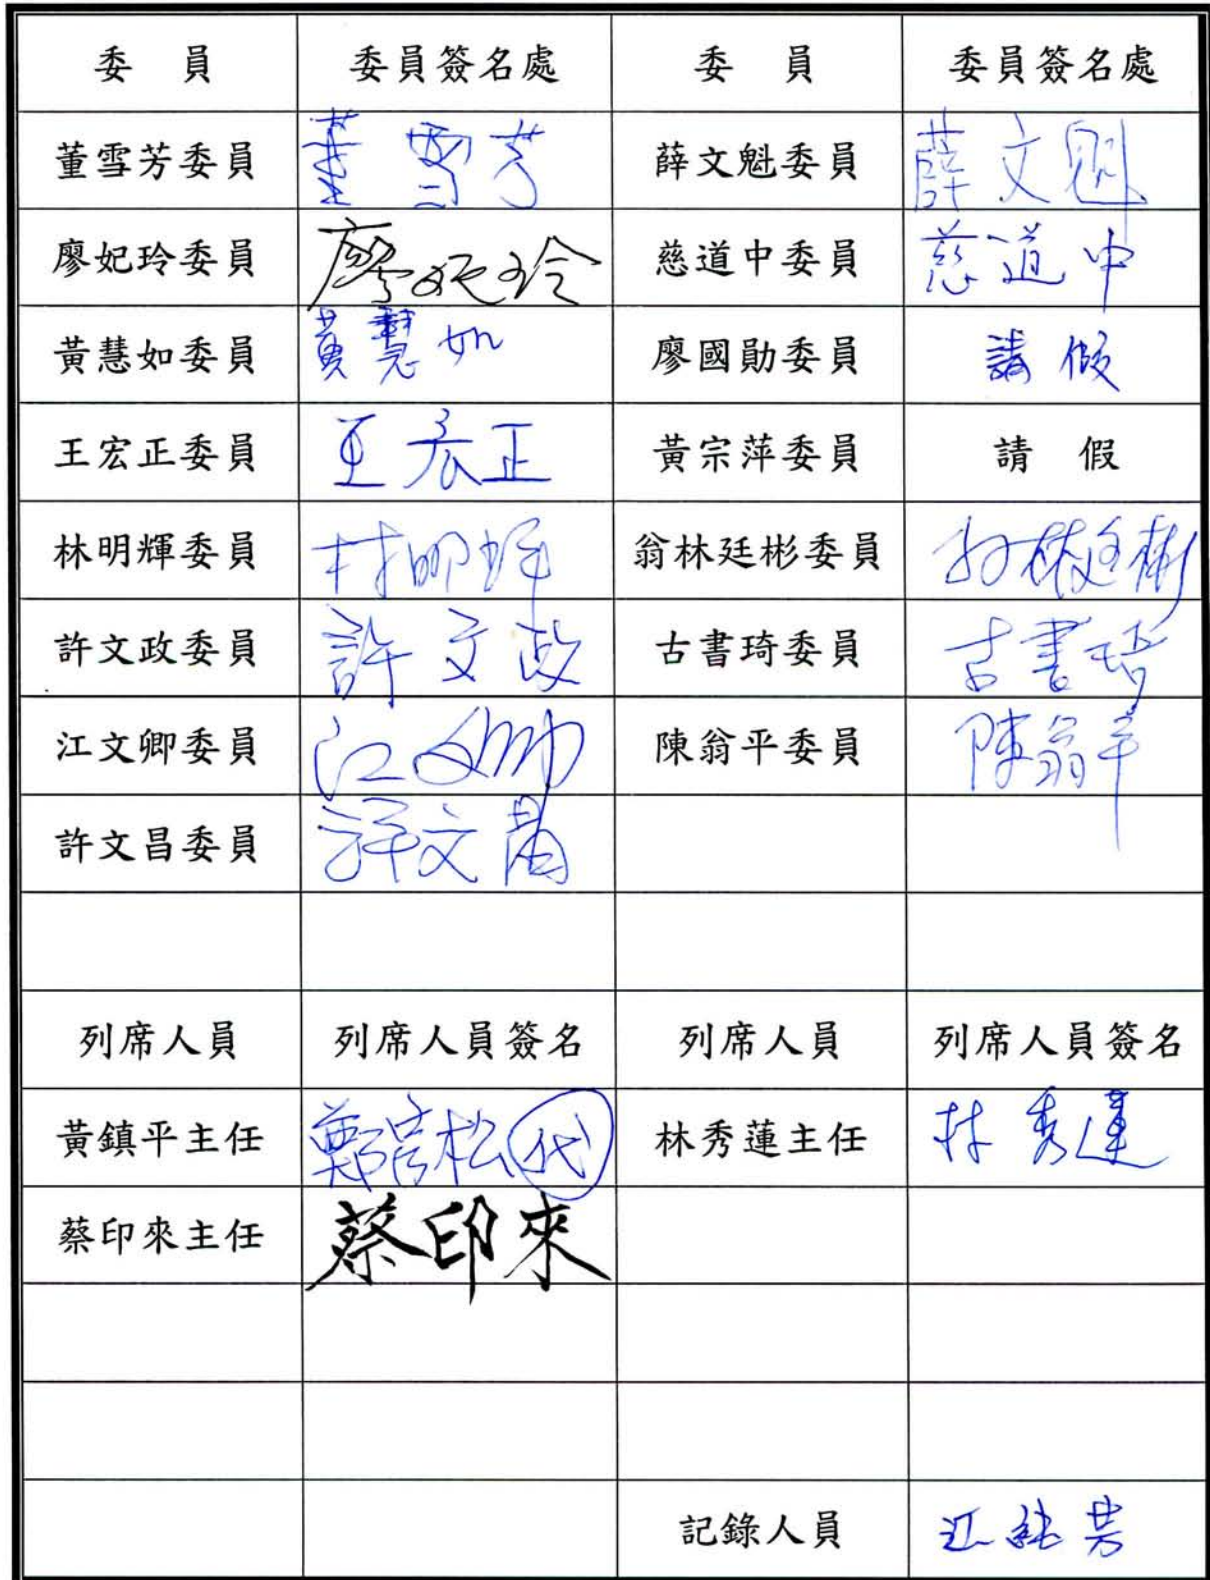 委 員 委員簽名處 委 員 委員簽名處
董雪芳委員 董雪芳 薛文魁委員 薛文魁
廖妃玲委員 廖妃玲 慈道中委員 慈道中
黃慧如委員 黃慧如 廖國勛委員 請假
王宏正委員 王宏正 黃宗萍委員 請 假
林明輝委員 林明輝 翁林廷彬委員 翁林廷彬
許文政委員 許文政 古書琦委員 古書琦
江文卿委員 江文卿 陳翁平委員 陳翁平
許文昌委員 許文昌
列席人員 列席人員簽名 列席人員 列席人員簽名
黃鎮平主任 鄭松代 林秀蓮主任 林秀蓮
蔡印來主任 蔡印來
記錄人員 江芳